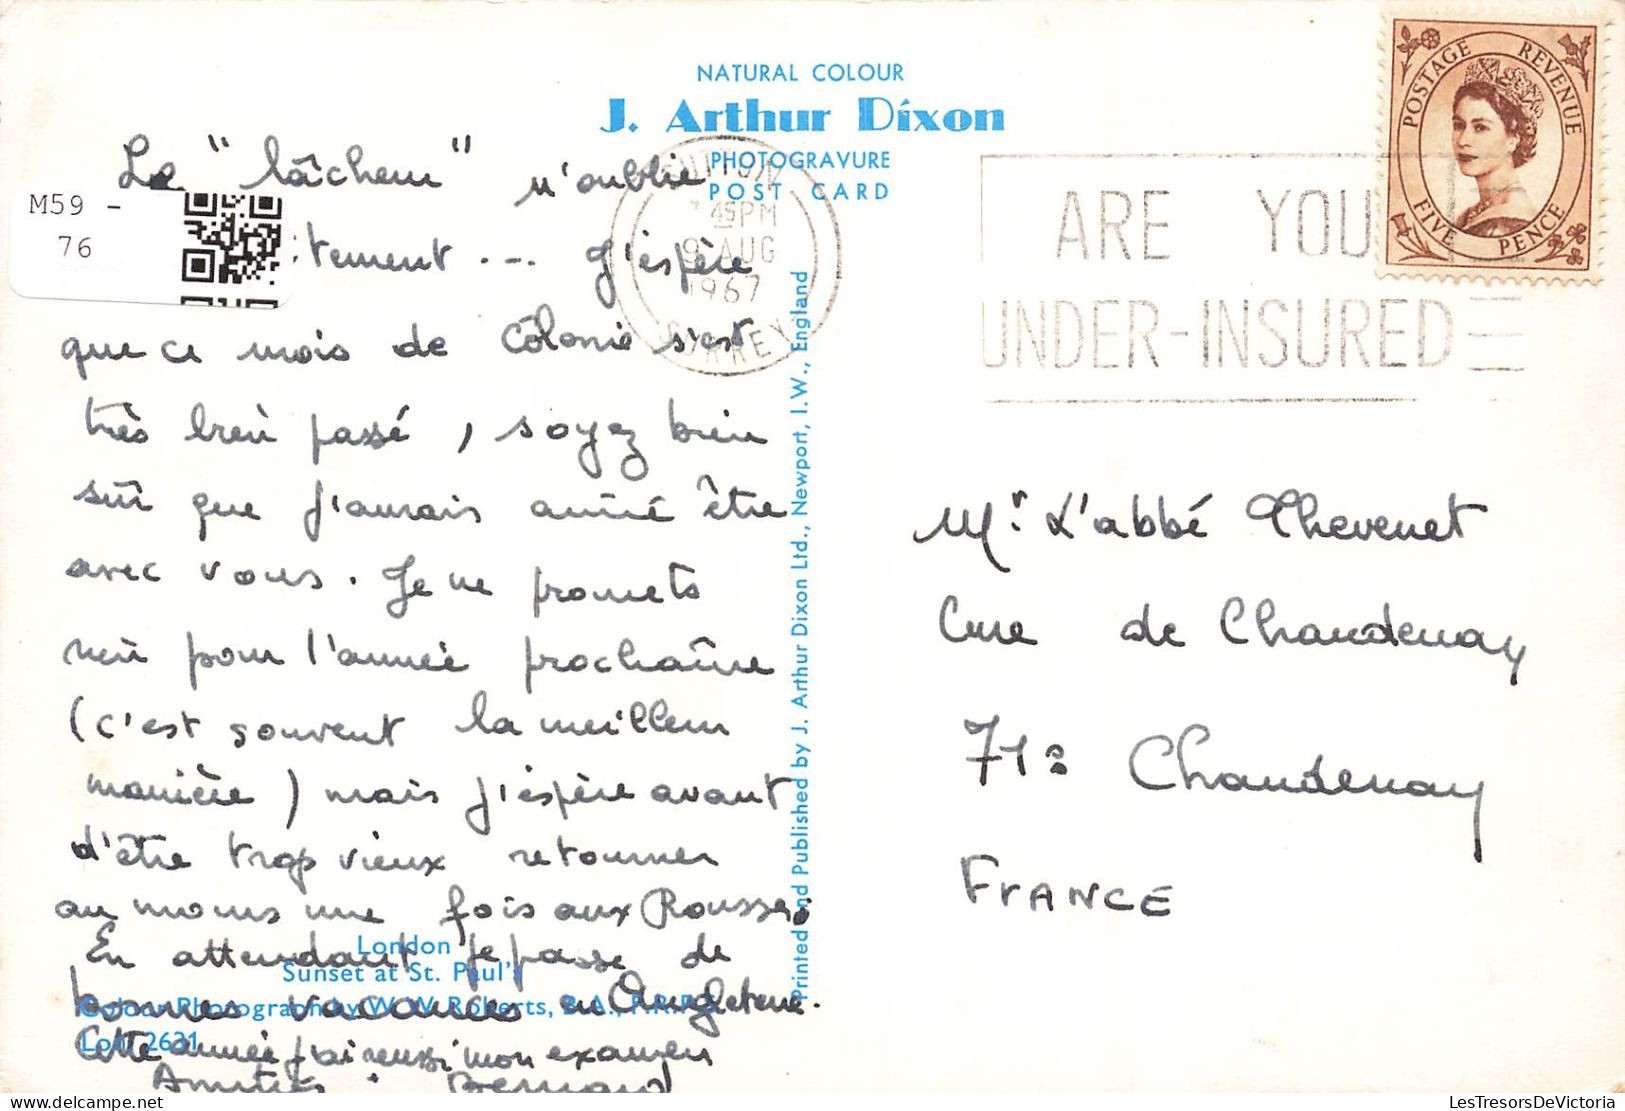 NATURAL COLOUR
J. Arthur Dixon
PHOTOGRAVURE
POST CARD
M59 -
76
Le "lâcheur" n'oublie
tement ... J'espère
que ce mois de Colonie s'est
très bien passé, soyez bien
sûr que j'aurais aimé être
avec vous. Je ne promets
rien pour l'année prochaine
(c'est souvent la meilleur
manière) mais j'espère avant
d'être trop vieux retourner
au moins une fois aux Rousses.
En attendant je passe de
bonnes vacances en Angleterre.
Cette année j'ai reussi mon examen
Amitiés. Bernard
London
Sunset at St. Paul's
Colour Photograph by W. W. Roberts, B.A., F.R.P.S.
L 2631
Printed and Published by J. Arthur Dixon Ltd., Newport, I.W., England
SUTTON
7 45PM
9 AUG
1967
SURREY
ARE YOU
UNDER-INSURED
POSTAGE REVENUE
FIVE PENCE
Mr. L'abbé Thevenet
Cure de Chaudenay
71: Chaudenay
FRANCE
LesTresorsDeVictoria